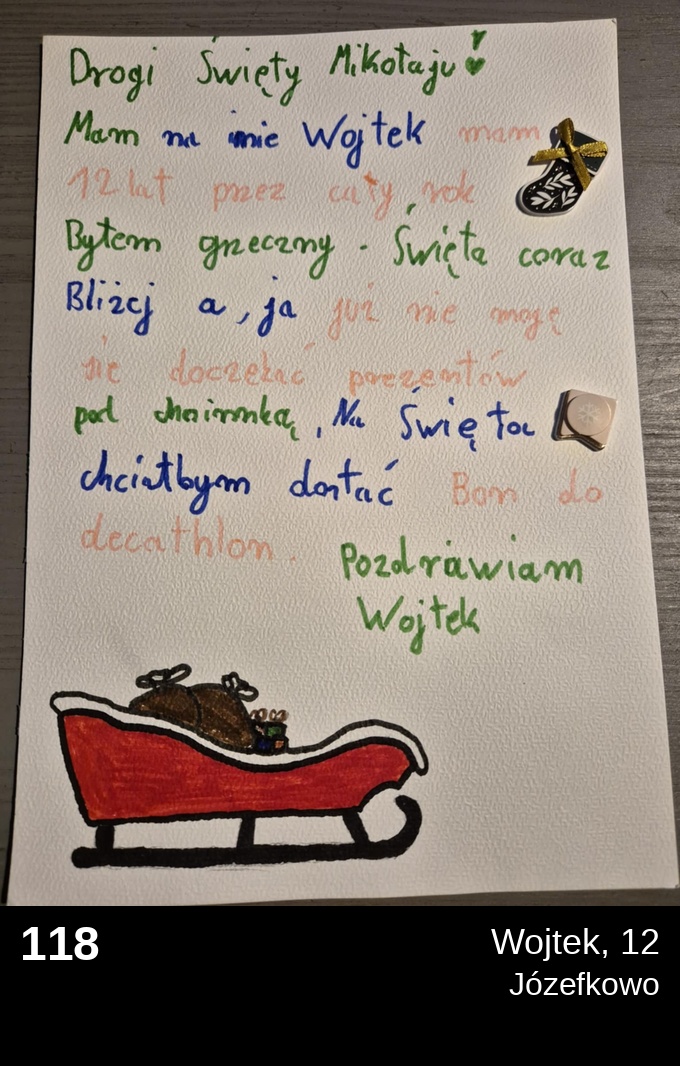 Drogi Święty Mikołaju!
Mam na imie Wojtek mam
12 lat przez cały rok
Byłem grzeczny. Święta coraz
Bliżej a, ja już nie mogę
się doczekać prezentów
pod choinką, Na Święta
chciałbym dostać Bon do
decathlon.
Pozdrawiam
Wojtek
118
Wojtek, 12
Józefkowo